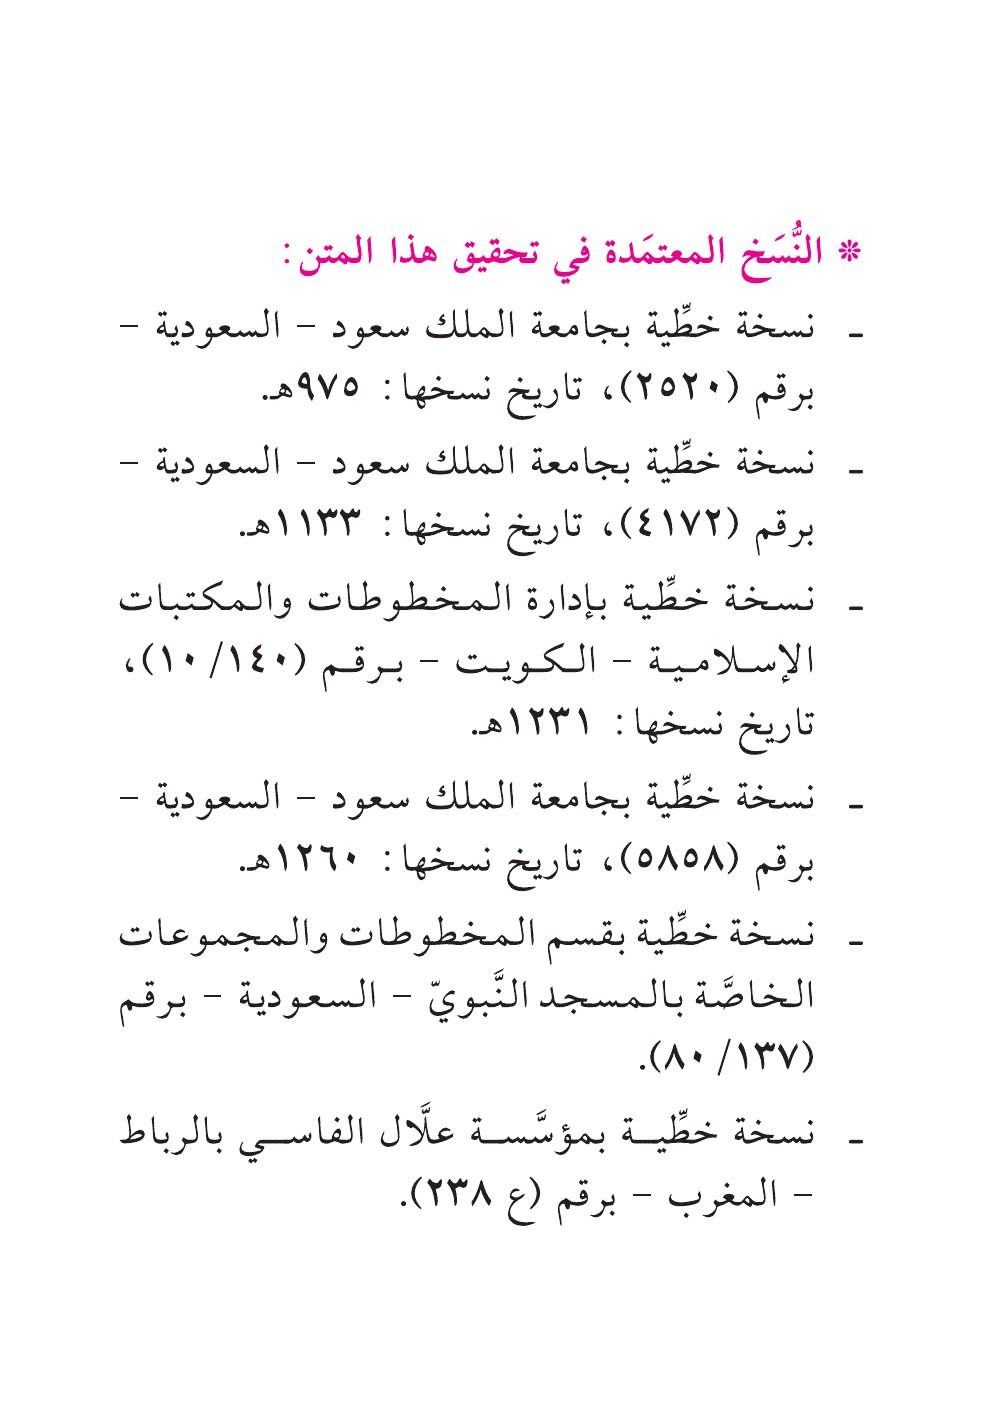 ❊ النُّسَخ المعتمَدة في تحقيق هذا المتن:
ـ نسخة خطِّية بجامعة الملك سعود – السعودية –
برقم (٢٥٢٠)، تاريخ نسخها: ٩٧٥هـ.
ـ نسخة خطِّية بجامعة الملك سعود – السعودية –
برقم (٤١٧٢)، تاريخ نسخها: ١١٣٣هـ.
ـ نسخة خطِّية بإدارة المخطوطات والمكتبات
الإسلامية – الكويت – برقم (١٤٠/ ١٠)،
تاريخ نسخها: ١٢٣١هـ.
ـ نسخة خطِّية بجامعة الملك سعود – السعودية –
برقم (٥٨٥٨)، تاريخ نسخها: ١٢٦٠هـ.
ـ نسخة خطِّية بقسم المخطوطات والمجموعات
الخاصَّة بالمسجد النَّبويّ – السعودية – برقم
(١٣٧/ ٨٠).
ـ نسخة خطِّية بمؤسَّسة علَّال الفاسي بالرباط
– المغرب – برقم (ع ٢٣٨).